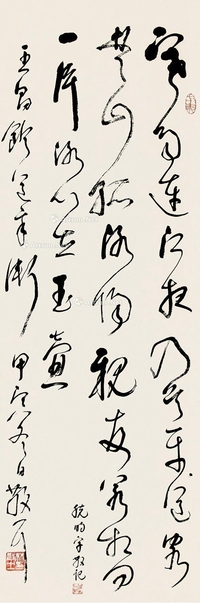 寒雨連江夜入吳平送客
楚山孤洛陽親友若相問
一片冰心在玉壺
王昌齡送辛漸 甲 冬日散耳
脫明字散記